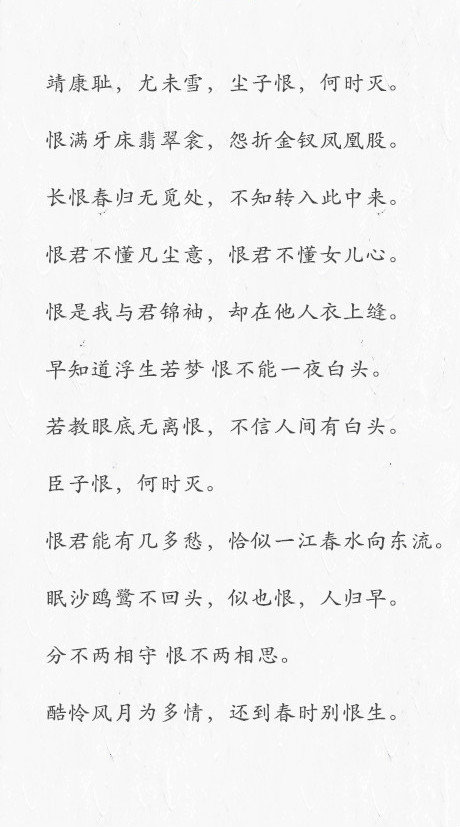 靖康耻，尤未雪，尘子恨，何时灭。
恨满牙床翡翠衾，怨折金钗凤凰股。
长恨春归无觅处，不知转入此中来。
恨君不懂凡尘意，恨君不懂女儿心。
恨是我与君锦袖，却在他人衣上缝。
早知道浮生若梦 恨不能一夜白头。
若教眼底无离恨，不信人间有白头。
臣子恨，何时灭。
恨君能有几多愁，恰似一江春水向东流。
眠沙鸥鹭不回头，似也恨，人归早。
分不两相守 恨不两相思。
酷怜风月为多情，还到春时别恨生。